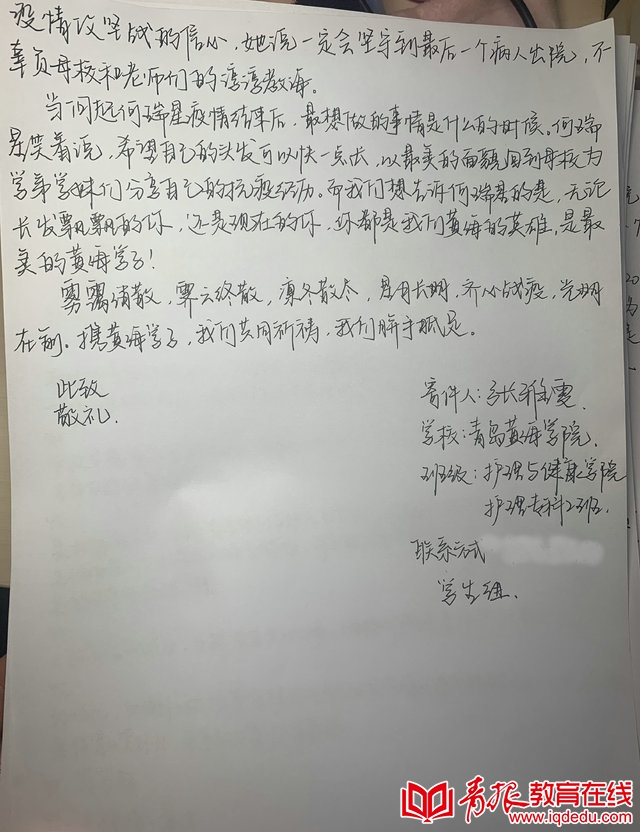 疫情攻坚战的信心,她说一定会坚守到最后一个病人出院,不
辜负母校和老师们的谆谆教诲。
当问起何瑞星疫情结束后,最想做的事情是什么的时候,何瑞
星笑着说,希望自己的头发可以快一点长,以最美的面貌回到母校为
学弟学妹们分享自己的抗疫经历。而我们想告诉何瑞星的是,无论
长发飘飘的你,还是现在的你,你都是我们黄海的英雄,是最
美的黄海学子!
雾霭请散,霁云终散,凛冬散尽,星月长明,齐心战疫,光明
在前。携黄海学子,我们共同祈祷,我们胼手胝足。
此致
敬礼.
寄件人:
学校:青岛黄海学院.
班级:护理与健康学院
护理专科2班.
联系方式
学生组.
青报教育在线
www.iqdedu.com